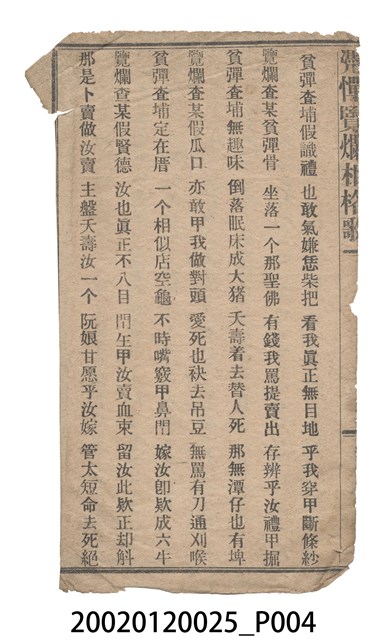 貧憚覽爛相格歌一
貧彈查埔假識禮 也敢氣嫌恁柴把 看我眞正無目地 乎我穿甲斷條紗
覽爛查某貧彈骨 坐落一个那聖佛 有錢我罵提賣出 存辨乎汝禮甲掘
貧彈查埔無趣味 倒落眠床成大猪 夭壽着去替人死 那無潭仔也有埤
覽爛查某假瓜口 亦敢甲我做對頭 愛死也袂去吊豆 無罵有刀通刈喉
貧彈查埔定在厝 一个相似店空龜 不時嘴竅甲鼻門 嫁汝卽欵成六牛
覽爛查某假賢德 汝也眞正不八目 門年甲汝賣血束 留汝此欵正却斛
那是卜賣做汝賣 主盤夭壽汝一个 阮娘甘愿乎汝嫁 管太短命去死絕
20020120025_P004